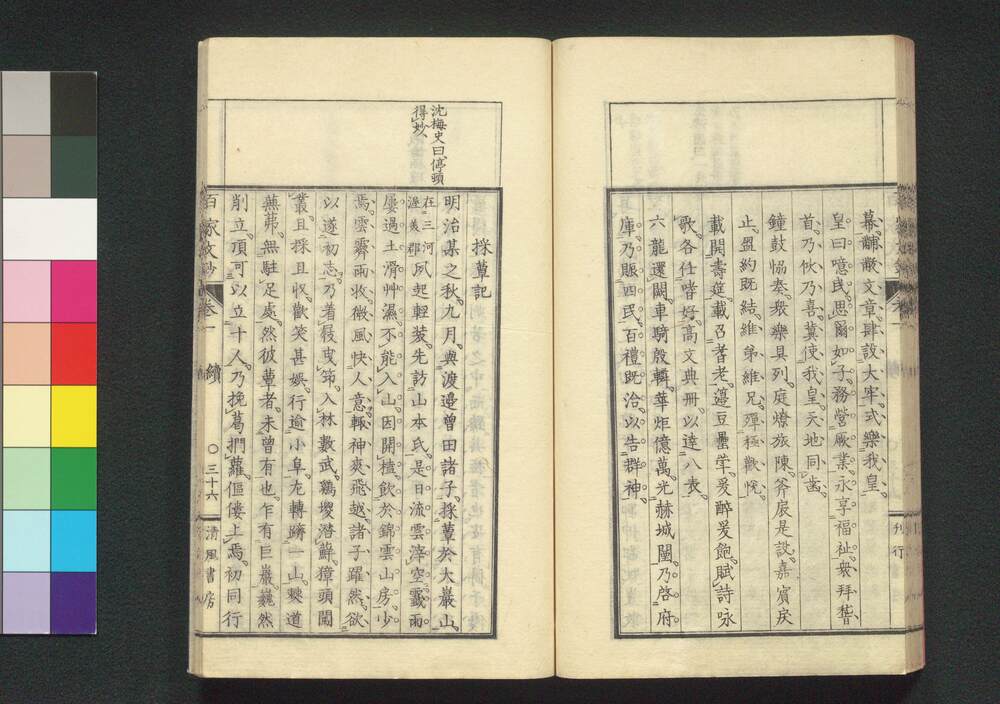 幕黼黻文章肆設大牢式樂我皇
皇曰噫民思爾如子務營厥業永享福祉衆拜稽
首乃攸乃喜冀使我皇天地同
鐘鼓恊奏衆樂具列庭燎旅陳斧扆是設嘉賓戾
止盟約既結維弟維兄殫極歡悅
載開壽筵載召耆老籩豆罍斝爰醉爰飽賦詩咏
歌各任嗜好高文典冊以達八表
六龍還闕車騎殷轔華炬億萬光赫城闉乃啓府
庫乃賑四民百禮既洽以告群神
刊行
沈梅史曰停頭
得妙
採蕈記
明治某之秋九月與渡邉曾田諸子採蕈於大巖山
在三河
渥美郡
夙起輕裝先訪山本氏是日流雲滓空霎雨
屢過土滑艸濕不能入山因開榼飲於錦雲山房少
焉雲霽雨收微風快人意輙神爽飛越諸子躍然欲
以遂初志乃着屐曳筇入林數武鷄㙡潛蘚獐頭鬧
叢且採且收歡笑甚娛行逾小阜左轉躋一山棘道
蕪茀無駐足處然彼蕈者未曾有也乍有巨巖巍然
削立頂可以立十人乃挽葛捫蘿傴僂上焉初同行
百家文鈔
卷一
續
〇三十六
清風書房